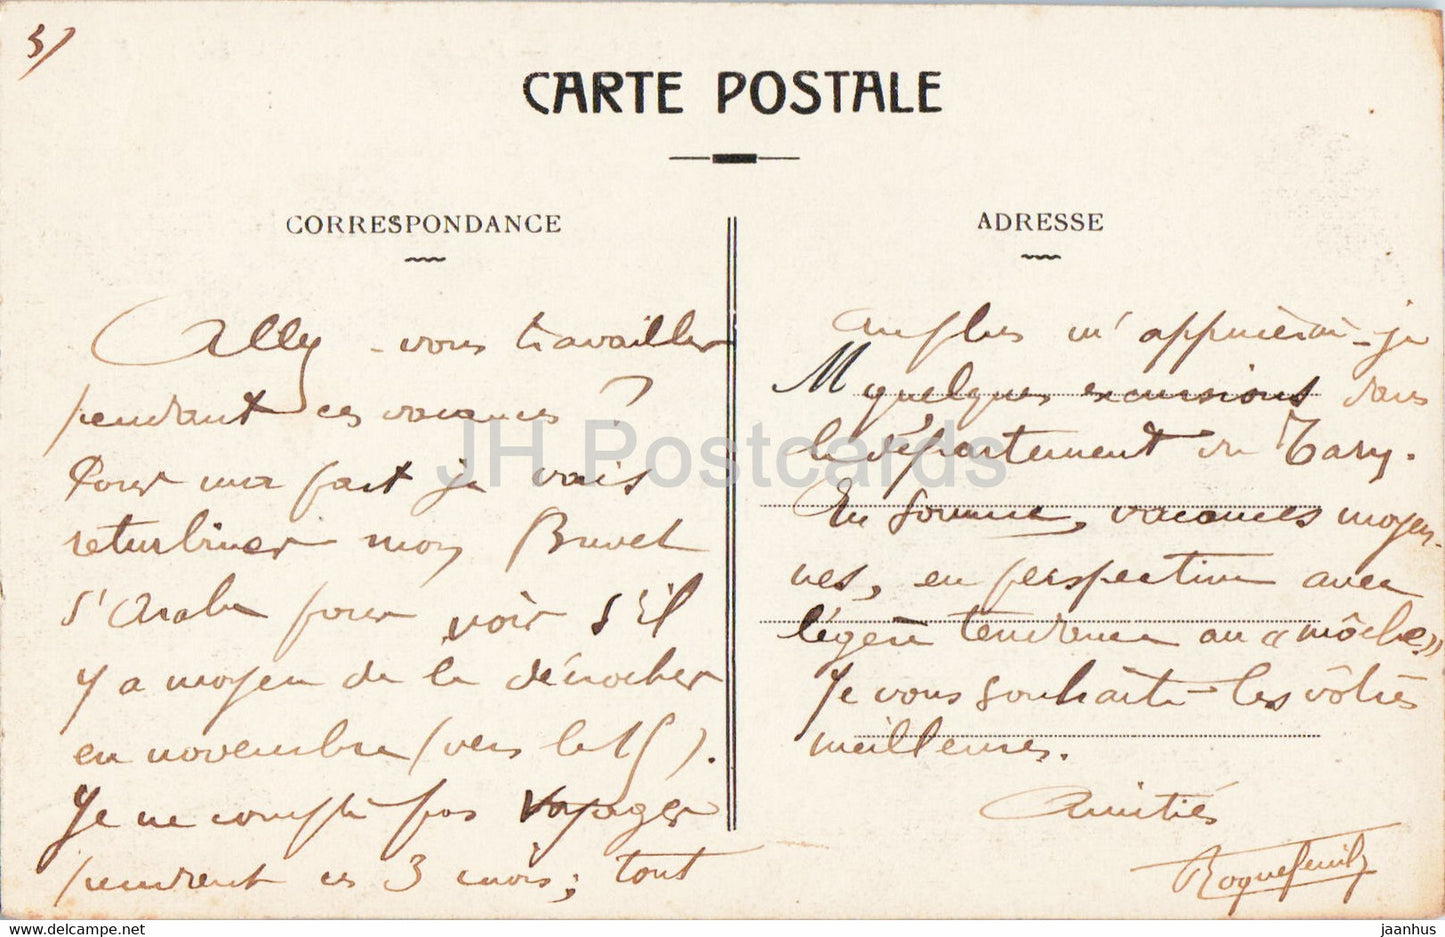 3/
CARTE POSTALE
CORRESPONDANCE
Allez-vous travailler
pendant ces vacances ?
Pour ma part je vais
returbiner mon Brevet
d'Arabe pour voir s'il
y a moyen de le décrocher
en novembre (vers le 15).
Je ne compte pas voyager
pendant ces 3 mois ; tout
ADRESSE
au plus m'appuierai-je
M
quelques excursions dans
le département du Tarn.
En somme, vacances moyen-
nes, en perspective avec
légère tendance au « môche »
Je vous souhaite les vôtres
meilleures.
Amitiés
Roquefeuil
JH Postcards
www.delcampe.net
jaanhus